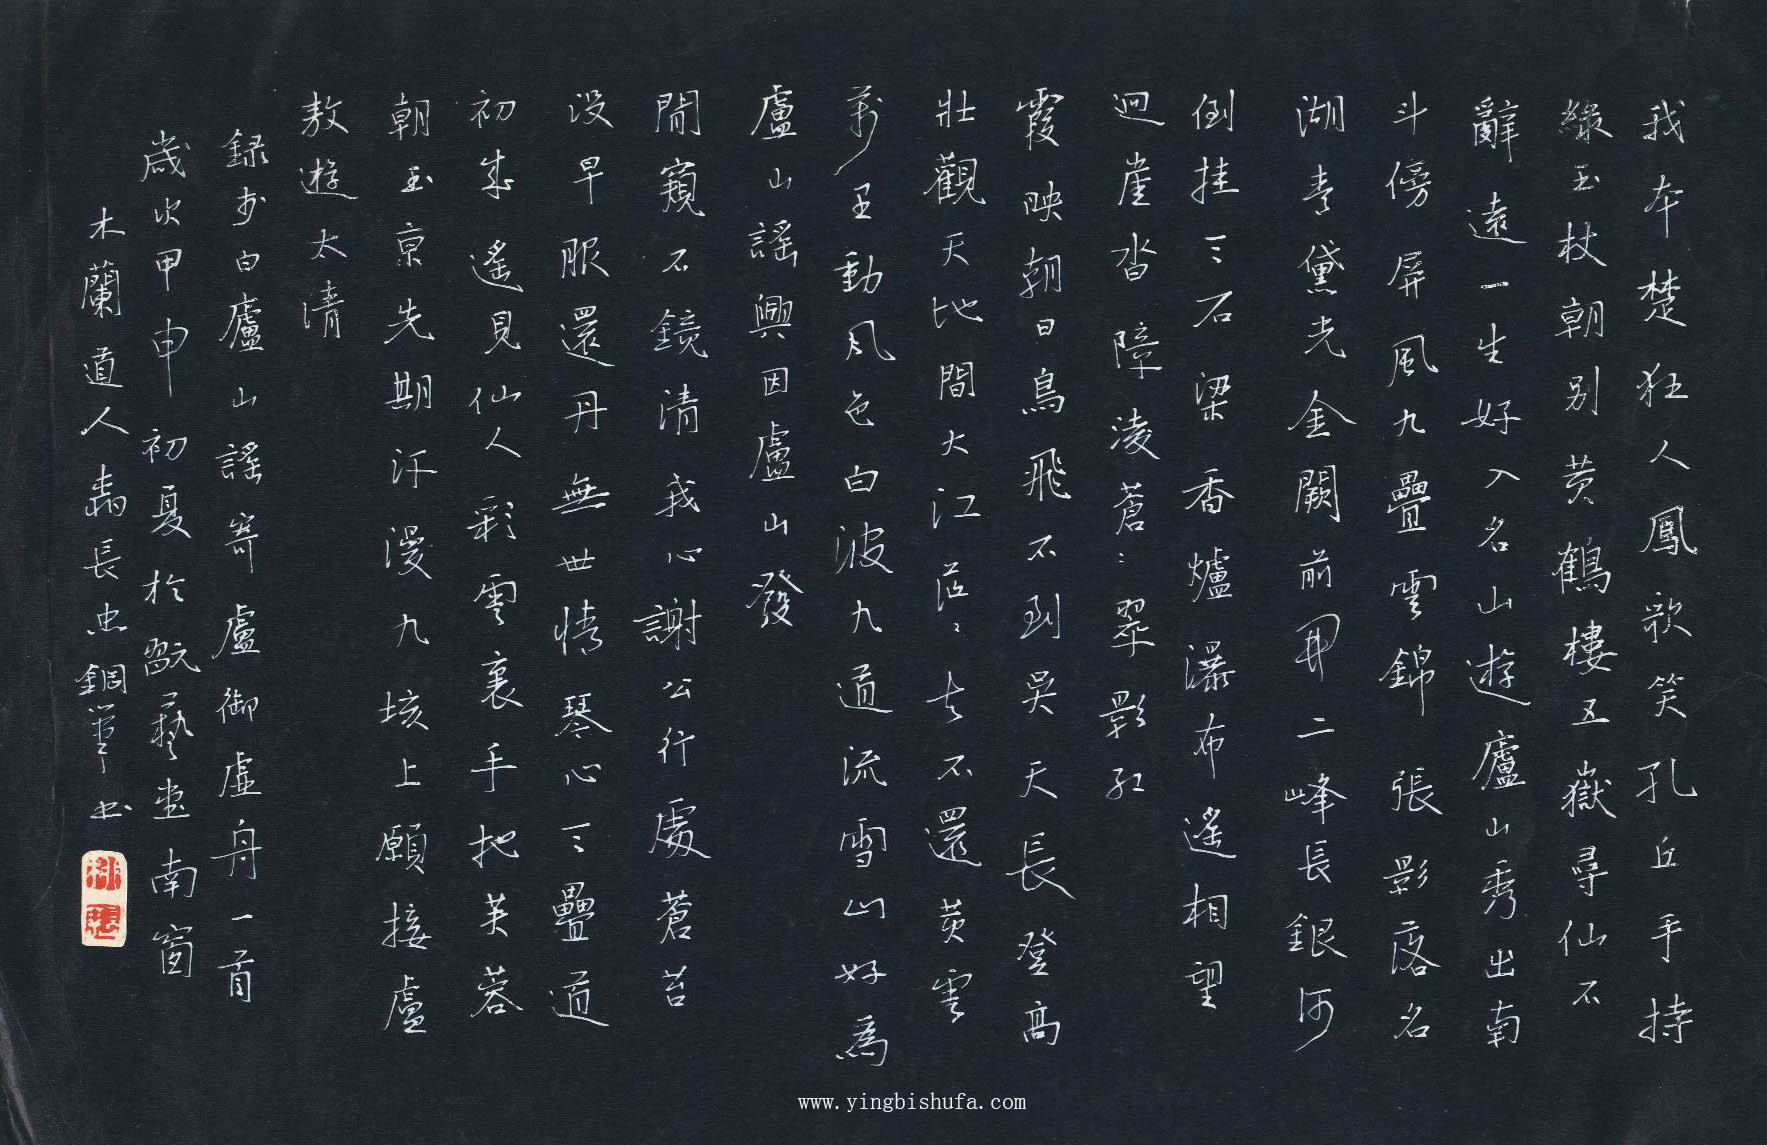 我本楚狂人鳳歌笑孔丘手持
綠玉杖朝别黄鶴樓五嶽尋仙不
辭遠一生好入名山遊廬山秀出南
斗傍屏風九疊雲錦張影落名
湖青黛光金闕前開二峰長銀河
倒挂三石梁香爐瀑布遙相望
迴崖沓障凌蒼〻翠影紅
霞映朝日鳥飛不到吳天長登高
壯觀天地間大江茫〻去不還黄雲
萬里動風色白波九道流雪山好為
盧山謠興因盧山發
閒窺石鏡清我心謝公行處蒼苔
没早服還丹無世情琴心三疊道
初成遙見仙人彩雲裏手把芙蓉
朝玉京先期汗漫九垓上願接盧
敖遊太清
録李白廬山謠寄盧御虚舟一首
歲次甲申初夏於翫藝堂南窗
木蘭道人長忠鋼筆書
www.yingbishufa.com